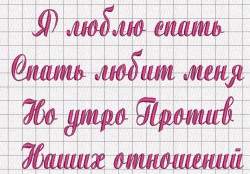 Я люблю спать
Спать любит меня
Но утро Против
Наших отношений